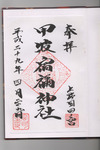 奉拝
上野国四之宮
甲波宿禰神社
平成二十九年四月